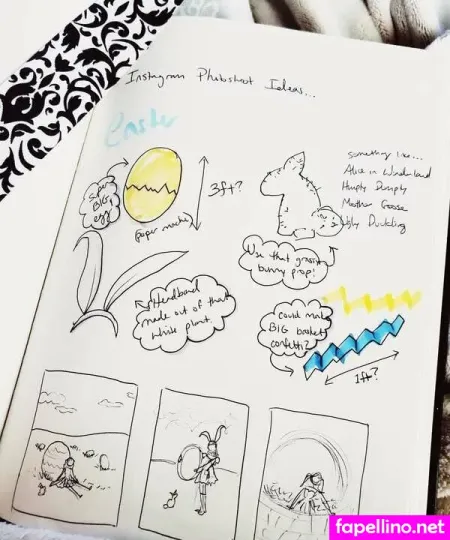 Instagram Photoshoot Ideas...
Easter
Super
BIG
egg
3ft?
(paper mache)
something like...
Alice in Wonderland
Humpty Dumpty
Mother Goose
Ugly Duckling
Use that grassy
bunny prop!
Headband
made out of that
white plant.
could make
BIG basket
confetti?
1ft?
fapellino.net